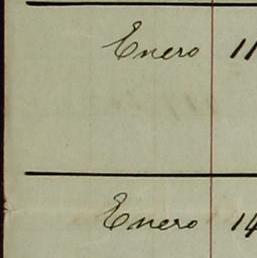 Enero 11
Enero 14